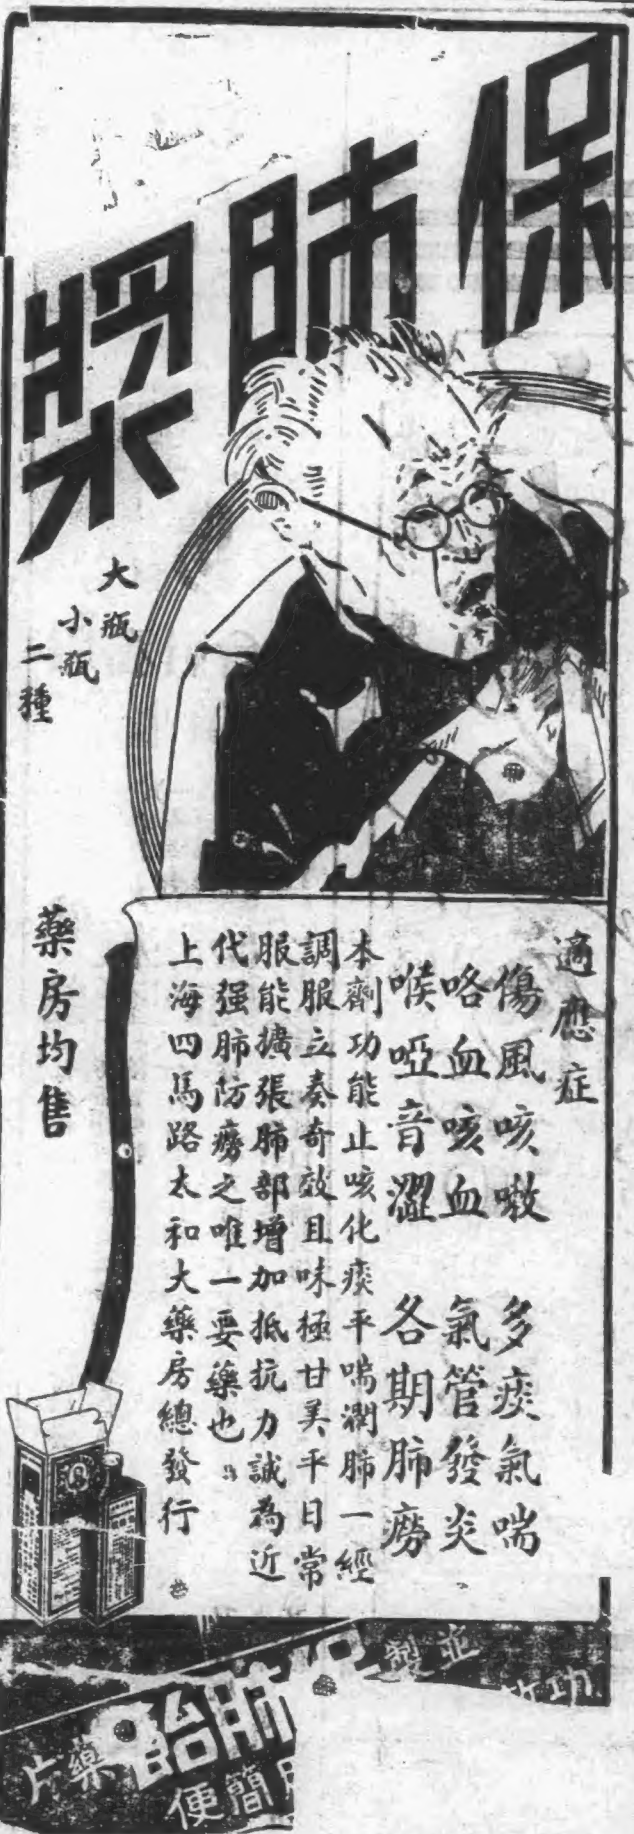 保肺漿
大瓶
小瓶
二種
藥房均售
適應症
傷風咳嗽 多痰氣喘
咯血咳血 氣管發炎
喉啞音澀 各期肺癆
本劑功能止咳化痰平喘潤肺一經
調服立奏奇效且味極甘美平日常
服能擴張肺部增加抵抗力誠為近
代强肺防癆之唯一要藥也。
上海四馬路太和大藥房總發行
並製
保肺
藥片
功效
簡便